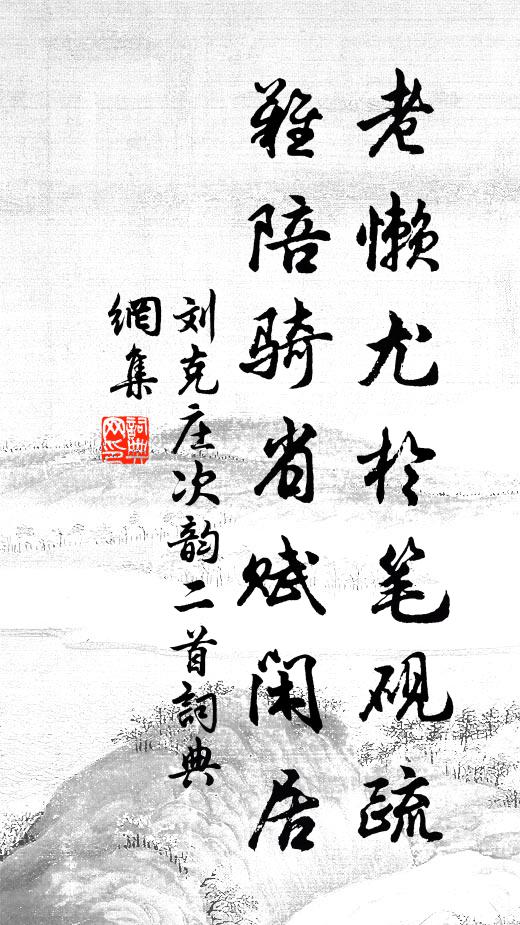 老懒尤於笔砚疏
难陪骑省赋闲居
刘克庄次韵二首詞典
網集
詞典
网印